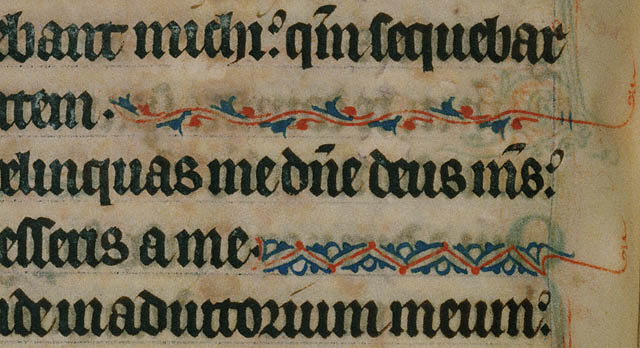 ebant michi: qm̄ sequebar
atem.
elinquas me dn̄e deus ms̄:
esseris a me.
nde in adiutorium meum: